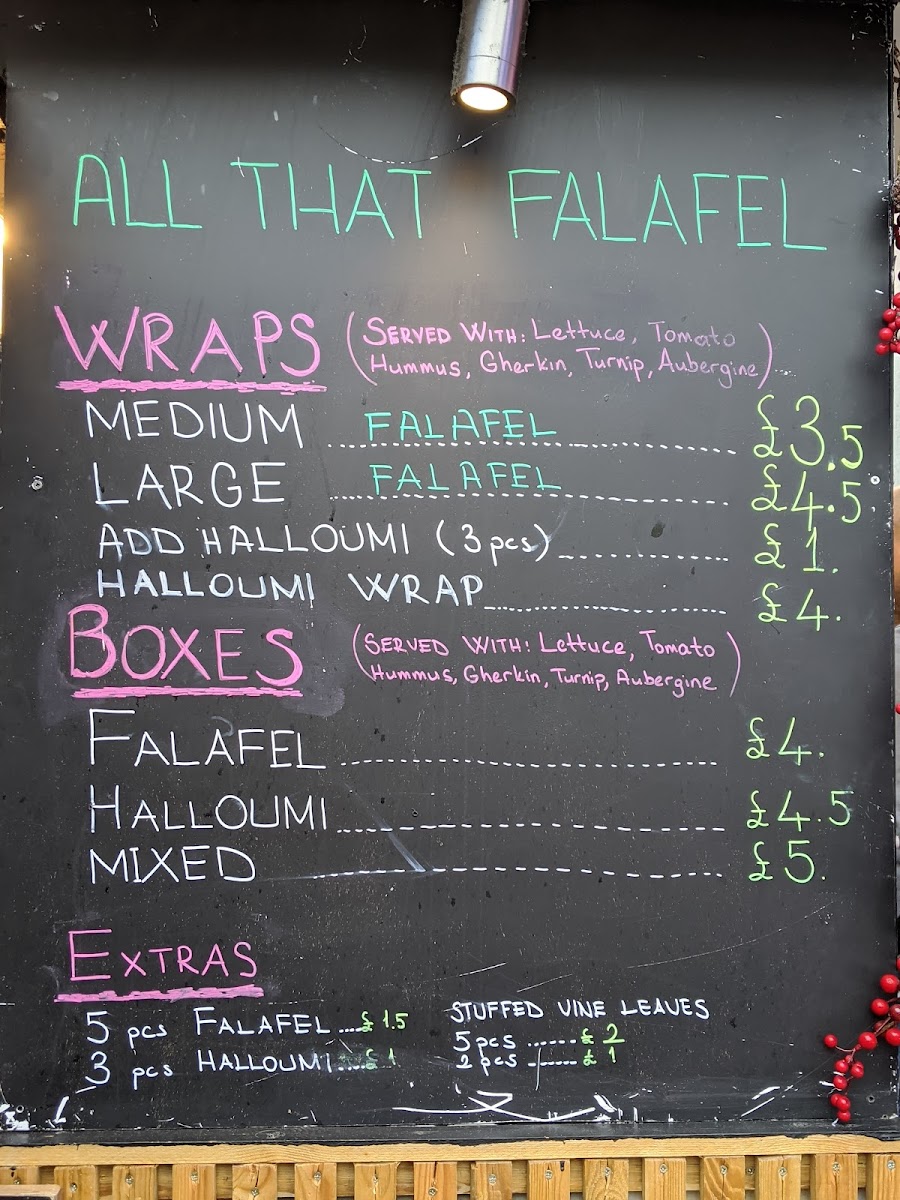 ALL THAT FALAFEL
WRAPS (SERVED WITH: Lettuce, Tomato
Hummus, Gherkin, Turnip, Aubergine)....
MEDIUM ... FALAFEL ... £3.5
LARGE ... FALAFEL ... £4.5
ADD HALLOUMI (3pcs) ... £1.
HALLOUMI WRAP ... £4.
BOXES (SERVED WITH: Lettuce, Tomato
Hummus, Gherkin, Turnip, Aubergine)
FALAFEL ... £4.
HALLOUMI ... £4.5
MIXED ... £5.
EXTRAS
5 pcs FALAFEL .... £1.5
3 pcs HALLOUMI .... £1
STUFFED VINE LEAVES
5pcs ...... £2
2pcs ...... £1